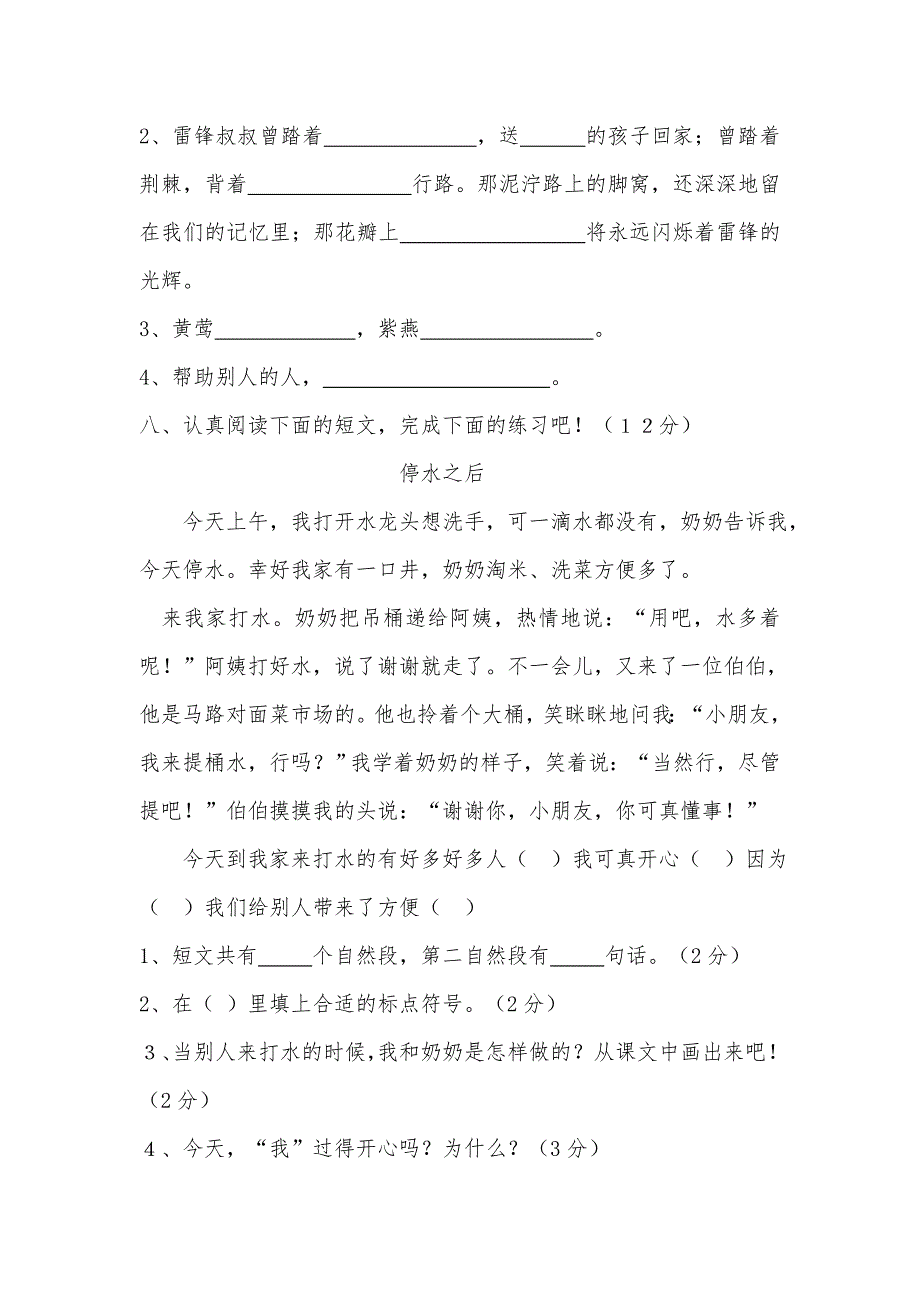 2、雷锋叔叔曾踏着______________，送______的孩子回家；曾踏着
荆棘，背着_______________行路。那泥泞路上的脚窝，还深深地留
在我们的记忆里；那花瓣上_________________将永远闪烁着雷锋的
光辉。
3、黄莺_____________，紫燕________________。
4、帮助别人的人，_____________________。
八、认真阅读下面的短文，完成下面的练习吧！（１２分）
停水之后
今天上午，我打开水龙头想洗手，可一滴水都没有，奶奶告诉我，
今天停水。幸好我家有一口井，奶奶淘米、洗菜方便多了。
来我家打水。奶奶把吊桶递给阿姨，热情地说：“用吧，水多着
呢！”阿姨打好水，说了谢谢就走了。不一会儿，又来了一位伯伯，
他是马路对面菜市场的。他也拎着个大桶，笑眯眯地问我：“小朋友，
我来提桶水，行吗？”我学着奶奶的样子，笑着说：“当然行，尽管
提吧！”伯伯摸摸我的头说：“谢谢你，小朋友，你可真懂事！”
今天到我家来打水的有好多好多人（　）我可真开心（　）因为
（　）我们给别人带来了方便（　）
1、短文共有_____个自然段，第二自然段有_____句话。（2分）
2、在（ ）里填上合适的标点符号。（2分）
３、当别人来打水的时候，我和奶奶是怎样做的？从课文中画出来吧！
（2分）
４、今天，“我”过得开心吗？为什么？（3分）